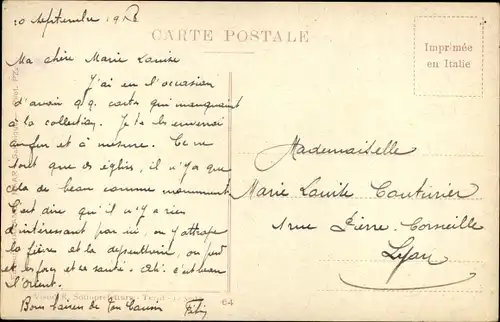 10 Septembre 19
CARTE POSTALE
Imprimée
en Italie
Ma chère Marie Louise
J'ai eu l'occasion
d'avoir q.q. cartes qui manquaient
à la collection. Je te les enverrai
au fur et à mesure. Ce ne
sont que des églises, il n'y a que
cela de beau comme monument
C'est dire qu'il n'y a rien
d'intéressant par ici, on y attrape
la fièvre et la dysenterie, on perd
et les forces et sa santé. Ah! c'est beau
l'Orient.
Bons baisers de ton Cousin
64
Mademoiselle
Marie Louise Couturier
1 rue Pierre Corneille
Lyon